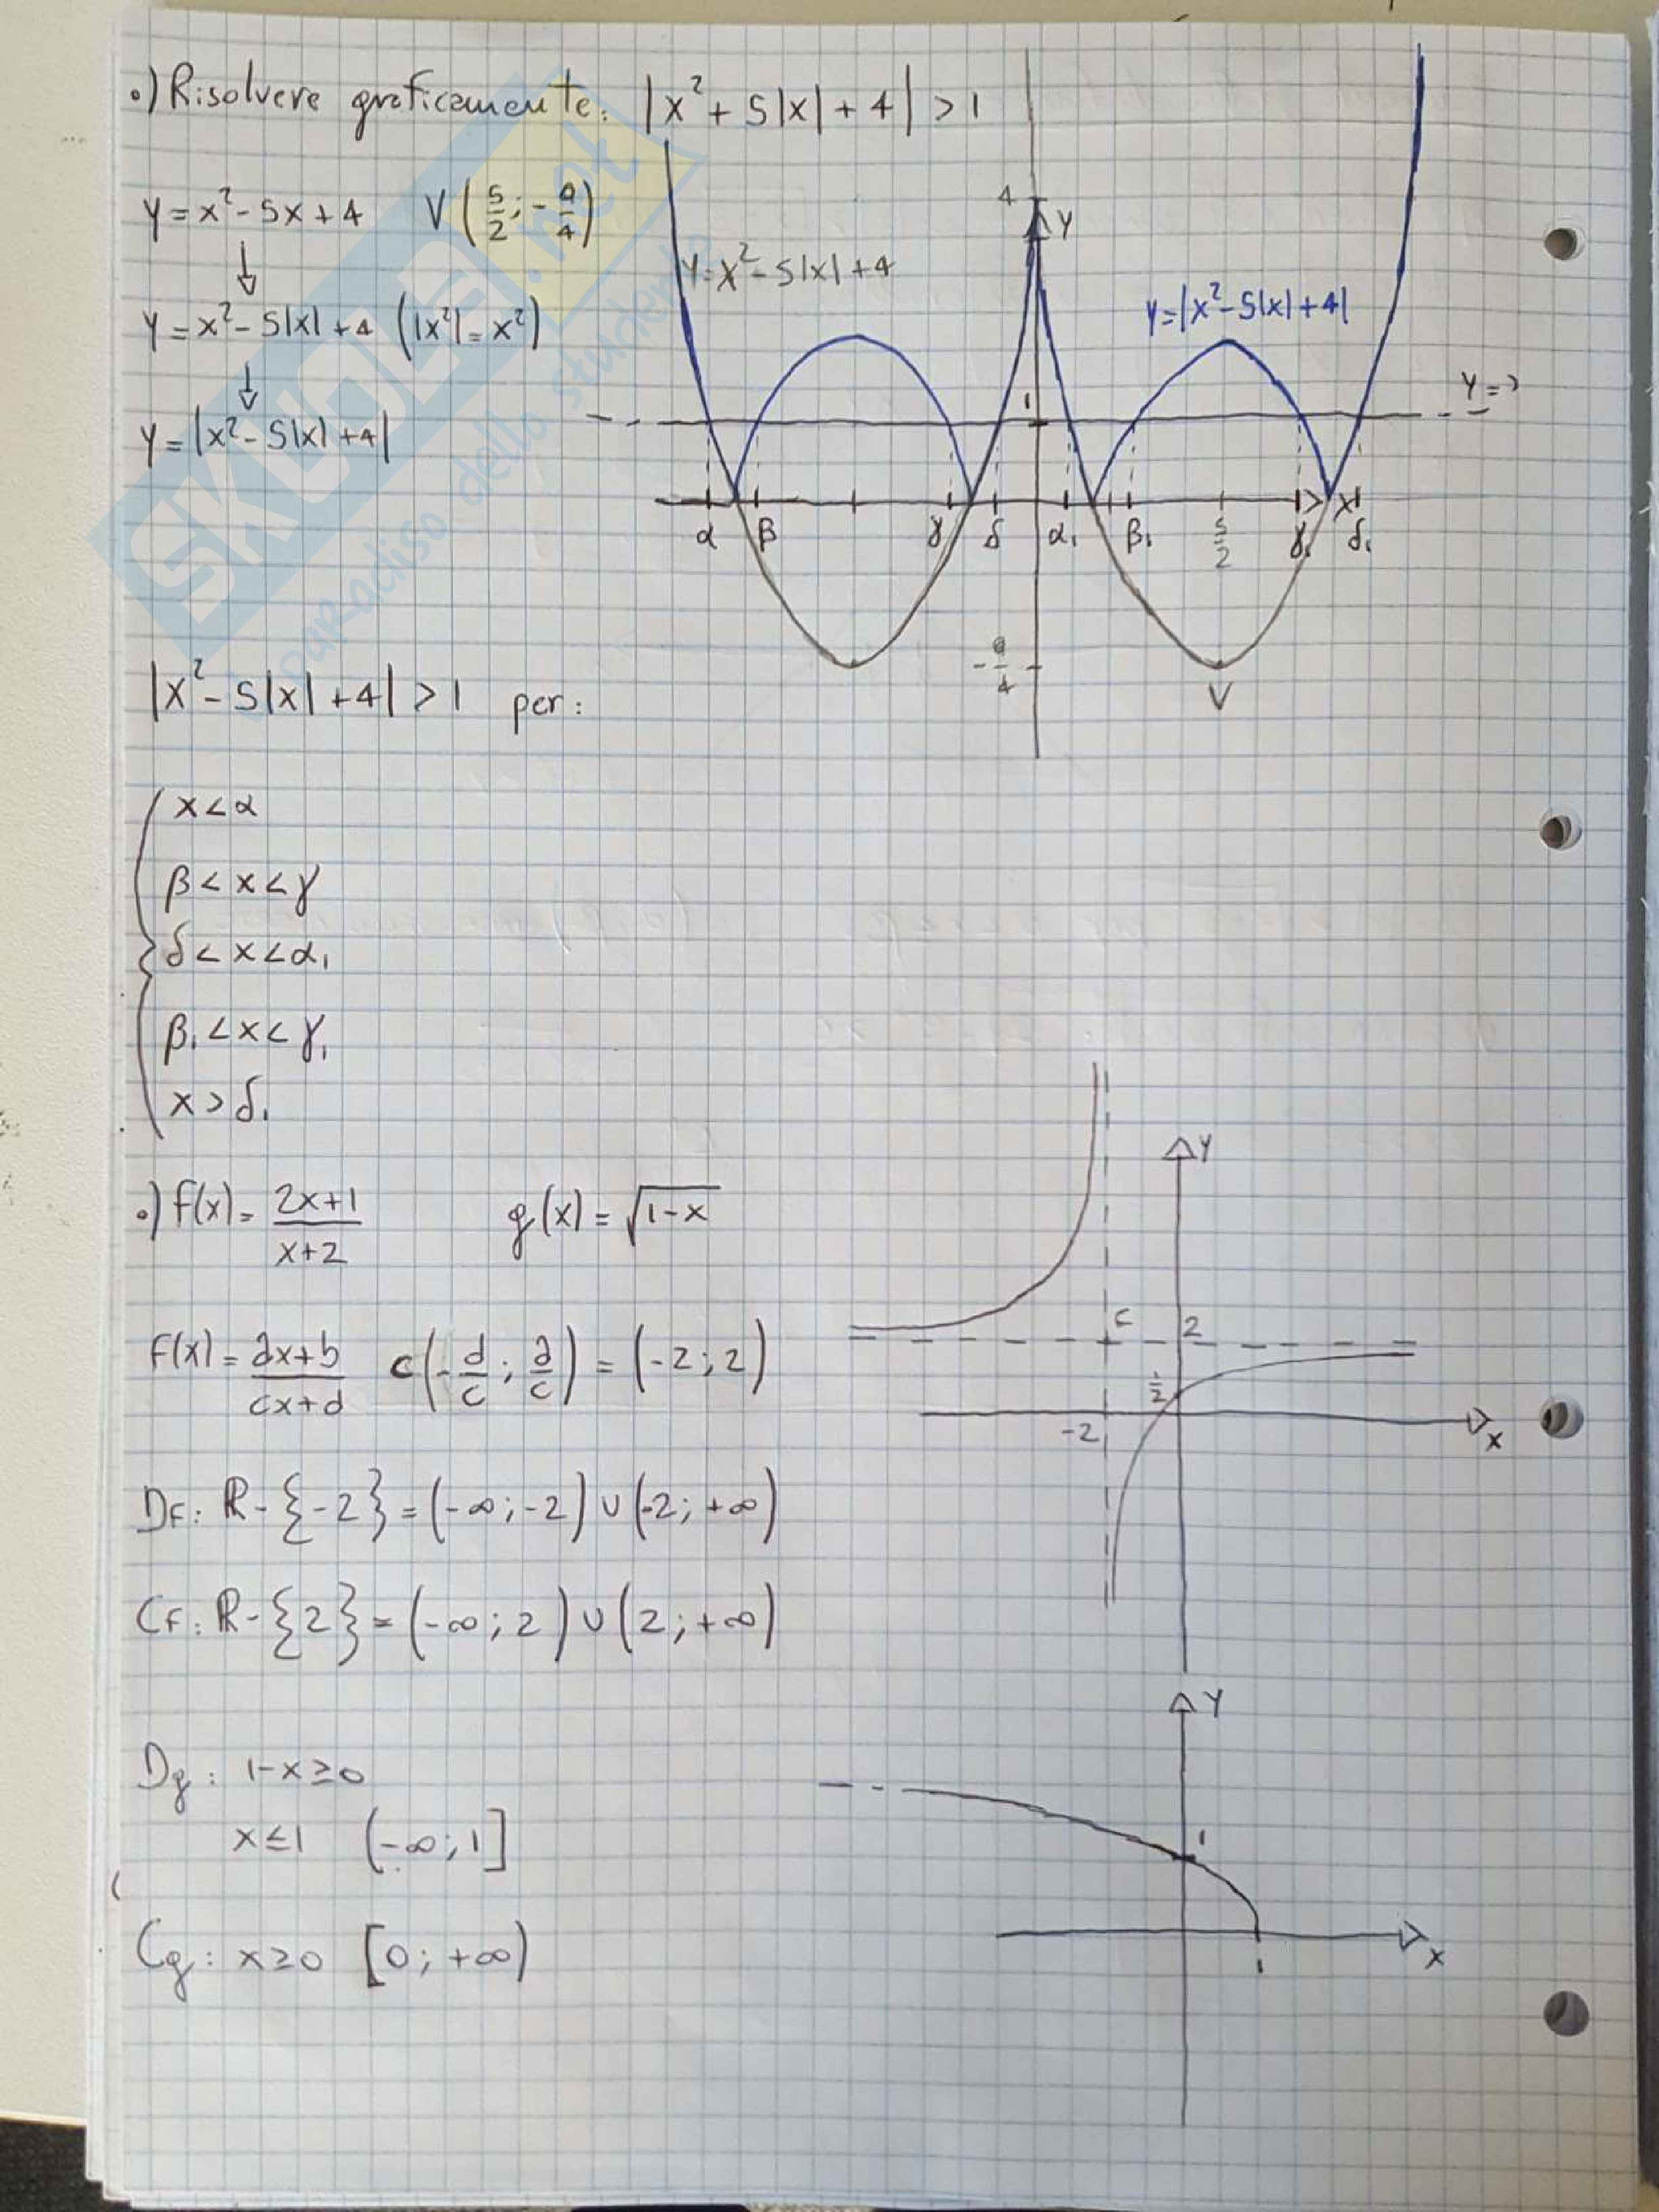 •) Risolvere graficamente: |x² + 5|x| + 4| > 1
y = x² - 5x + 4   V (5/2 ; -9/4)
↓
y = x² - 5|x| + 4  (|x²| = x²)
↓
y = |x² - 5|x| + 4|
4
y
y = x² - 5|x| + 4
y = |x² - 5|x| + 4|
1
y =
x
α β γ δ α₁ β₁ 5/2 γ₁ δ₁
-9/4
V
|x² - 5|x| + 4| > 1 per:
x < α
β < x < γ
δ < x < α₁
β₁ < x < γ₁
x > δ₁
•) f(x) = (2x+1)/(x+2)   g(x) = √(1-x)
f(x) = (ax+b)/(cx+d)   C(-d/c ; a/c) = (-2 ; 2)
Df: ℝ - {-2} = (-∞ ; -2) ∪ (-2 ; +∞)
Cf: ℝ - {2} = (-∞ ; 2) ∪ (2 ; +∞)
y
C
2
1/2
-2
x
Dg: 1-x ≥ 0
x ≤ 1   (-∞ ; 1]
Cg: x ≥ 0   [0 ; +∞)
y
1
1
x
SKUOLA.net
il paradiso dello studente